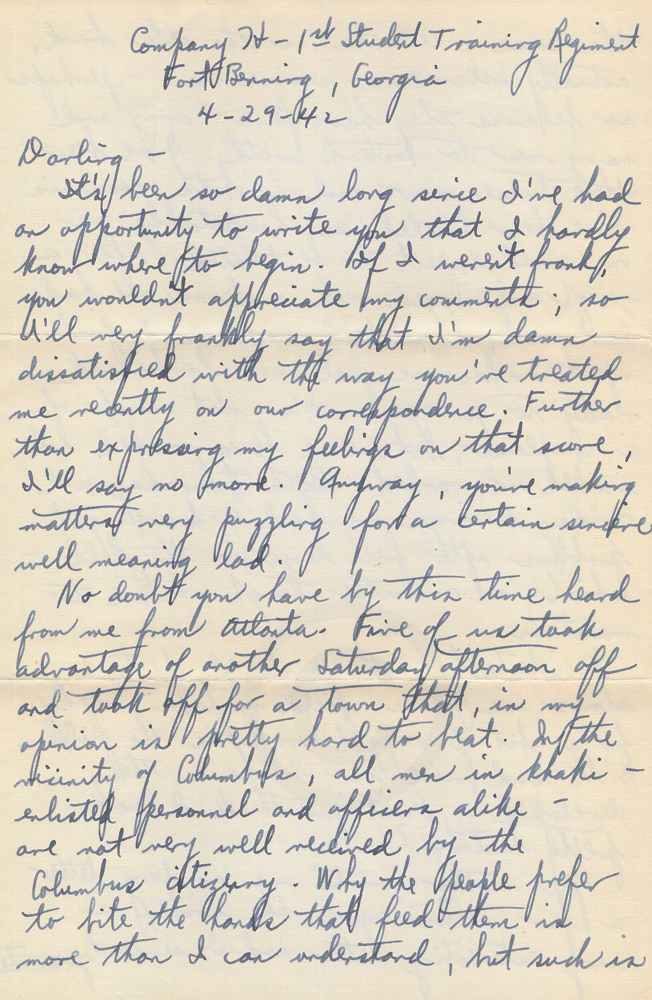 Company H - 1st Student Training Regiment
Fort Benning, Georgia
4-29-42
Darling -
It's been so damn long since I've had
an opportunity to write you that I hardly
know where to begin. If I weren't frank,
you wouldn't appreciate my comments; so
I'll very frankly say that I'm damn
dissatisfied with the way you've treated
me recently on our correspondence. Further
than expressing my feelings on that score,
I'll say no more. Anyway, you're making
matters very puzzling for a certain sincere
well meaning lad.
No doubt you have by this time heard
from me from Atlanta. Five of us took
advantage of another Saturday afternoon off
and took off for a town that, in my
opinion is pretty hard to beat. In the
vicinity of Columbus, all men in khaki -
enlisted personnel and officers alike -
are not very well received by the
Columbus citizenry. Why the people prefer
to bite the hands that feed them is
more than I can understand, but such is